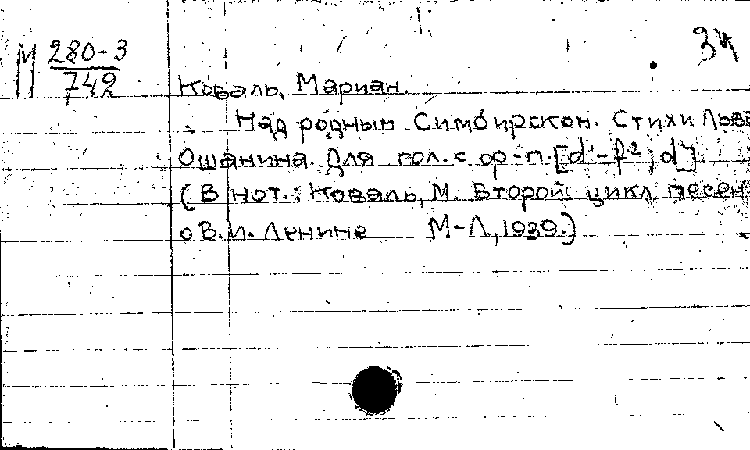 М 280-3
742
34
Коваль, Мариан.
Над родным Симбирском. Стихи Льва
Ошанина. Для гол. с ф-п. [d¹-f²; d]
(В нот.: Коваль, М. Второй цикл песен
о В.И. Ленине М-Л, 1939.)